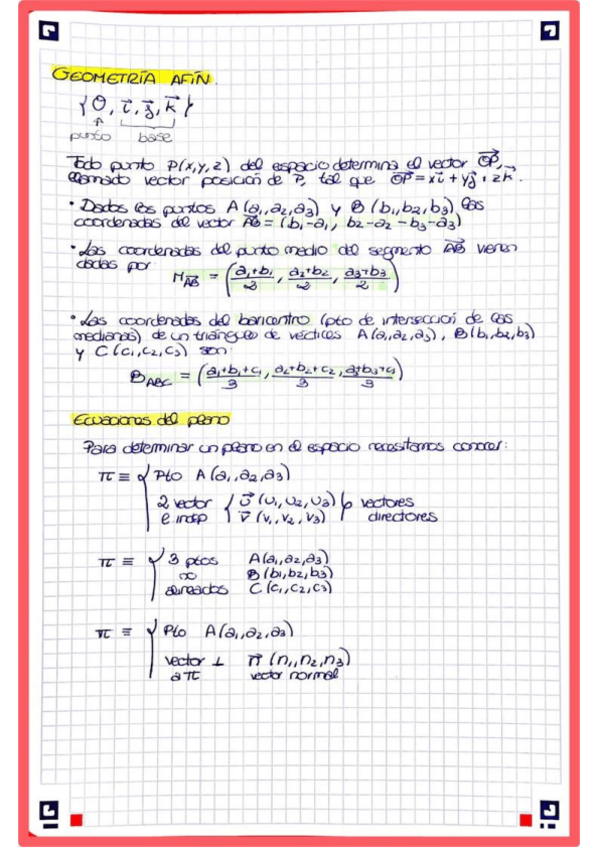 GEOMETRÍA AFÍN.
{O, i⃗, j⃗, k⃗}
punto base
Todo punto P(x,y,z) del espacio determina el vector OP⃗,
llamado vector posición de P, tal que OP⃗ = xi⃗ + yj⃗ + zk⃗.
• Dados los puntos A(a₁,a₂,a₃) y B(b₁,b₂,b₃) las
coordenadas del vector AB⃗ = (b₁-a₁, b₂-a₂-b₃-a₃)
• Las coordenadas del punto medio del segmento AB⃗ vienen
dadas por M_AB⃗ = ((a₁+b₁)/2, (a₂+b₂)/2, (a₃+b₃)/2)
• Las coordenadas del baricentro (pto de intersección de las
medianas) de un triángulo de vértices A(a₁,a₂,a₃), B(b₁,b₂,b₃)
y C(c₁,c₂,c₃) son:
B_ABC = ((a₁+b₁+c₁)/3, (a₂+b₂+c₂)/3, (a₃+b₃+c₃)/3)
Ecuaciones del plano
Para determinar un plano en el espacio necesitamos conocer:
π ≡ { Pto A(a₁,a₂,a₃)
2 vector { u⃗ (u₁,u₂,u₃) } vectores
e indep v⃗ (v₁,v₂,v₃) directores
π ≡ { 3 ptos A(a₁,a₂,a₃)
no B(b₁,b₂,b₃)
alineados C(c₁,c₂,c₃)
π ≡ { Pto A(a₁,a₂,a₃)
vector ⊥ n⃗ (n₁,n₂,n₃)
a π vector normal